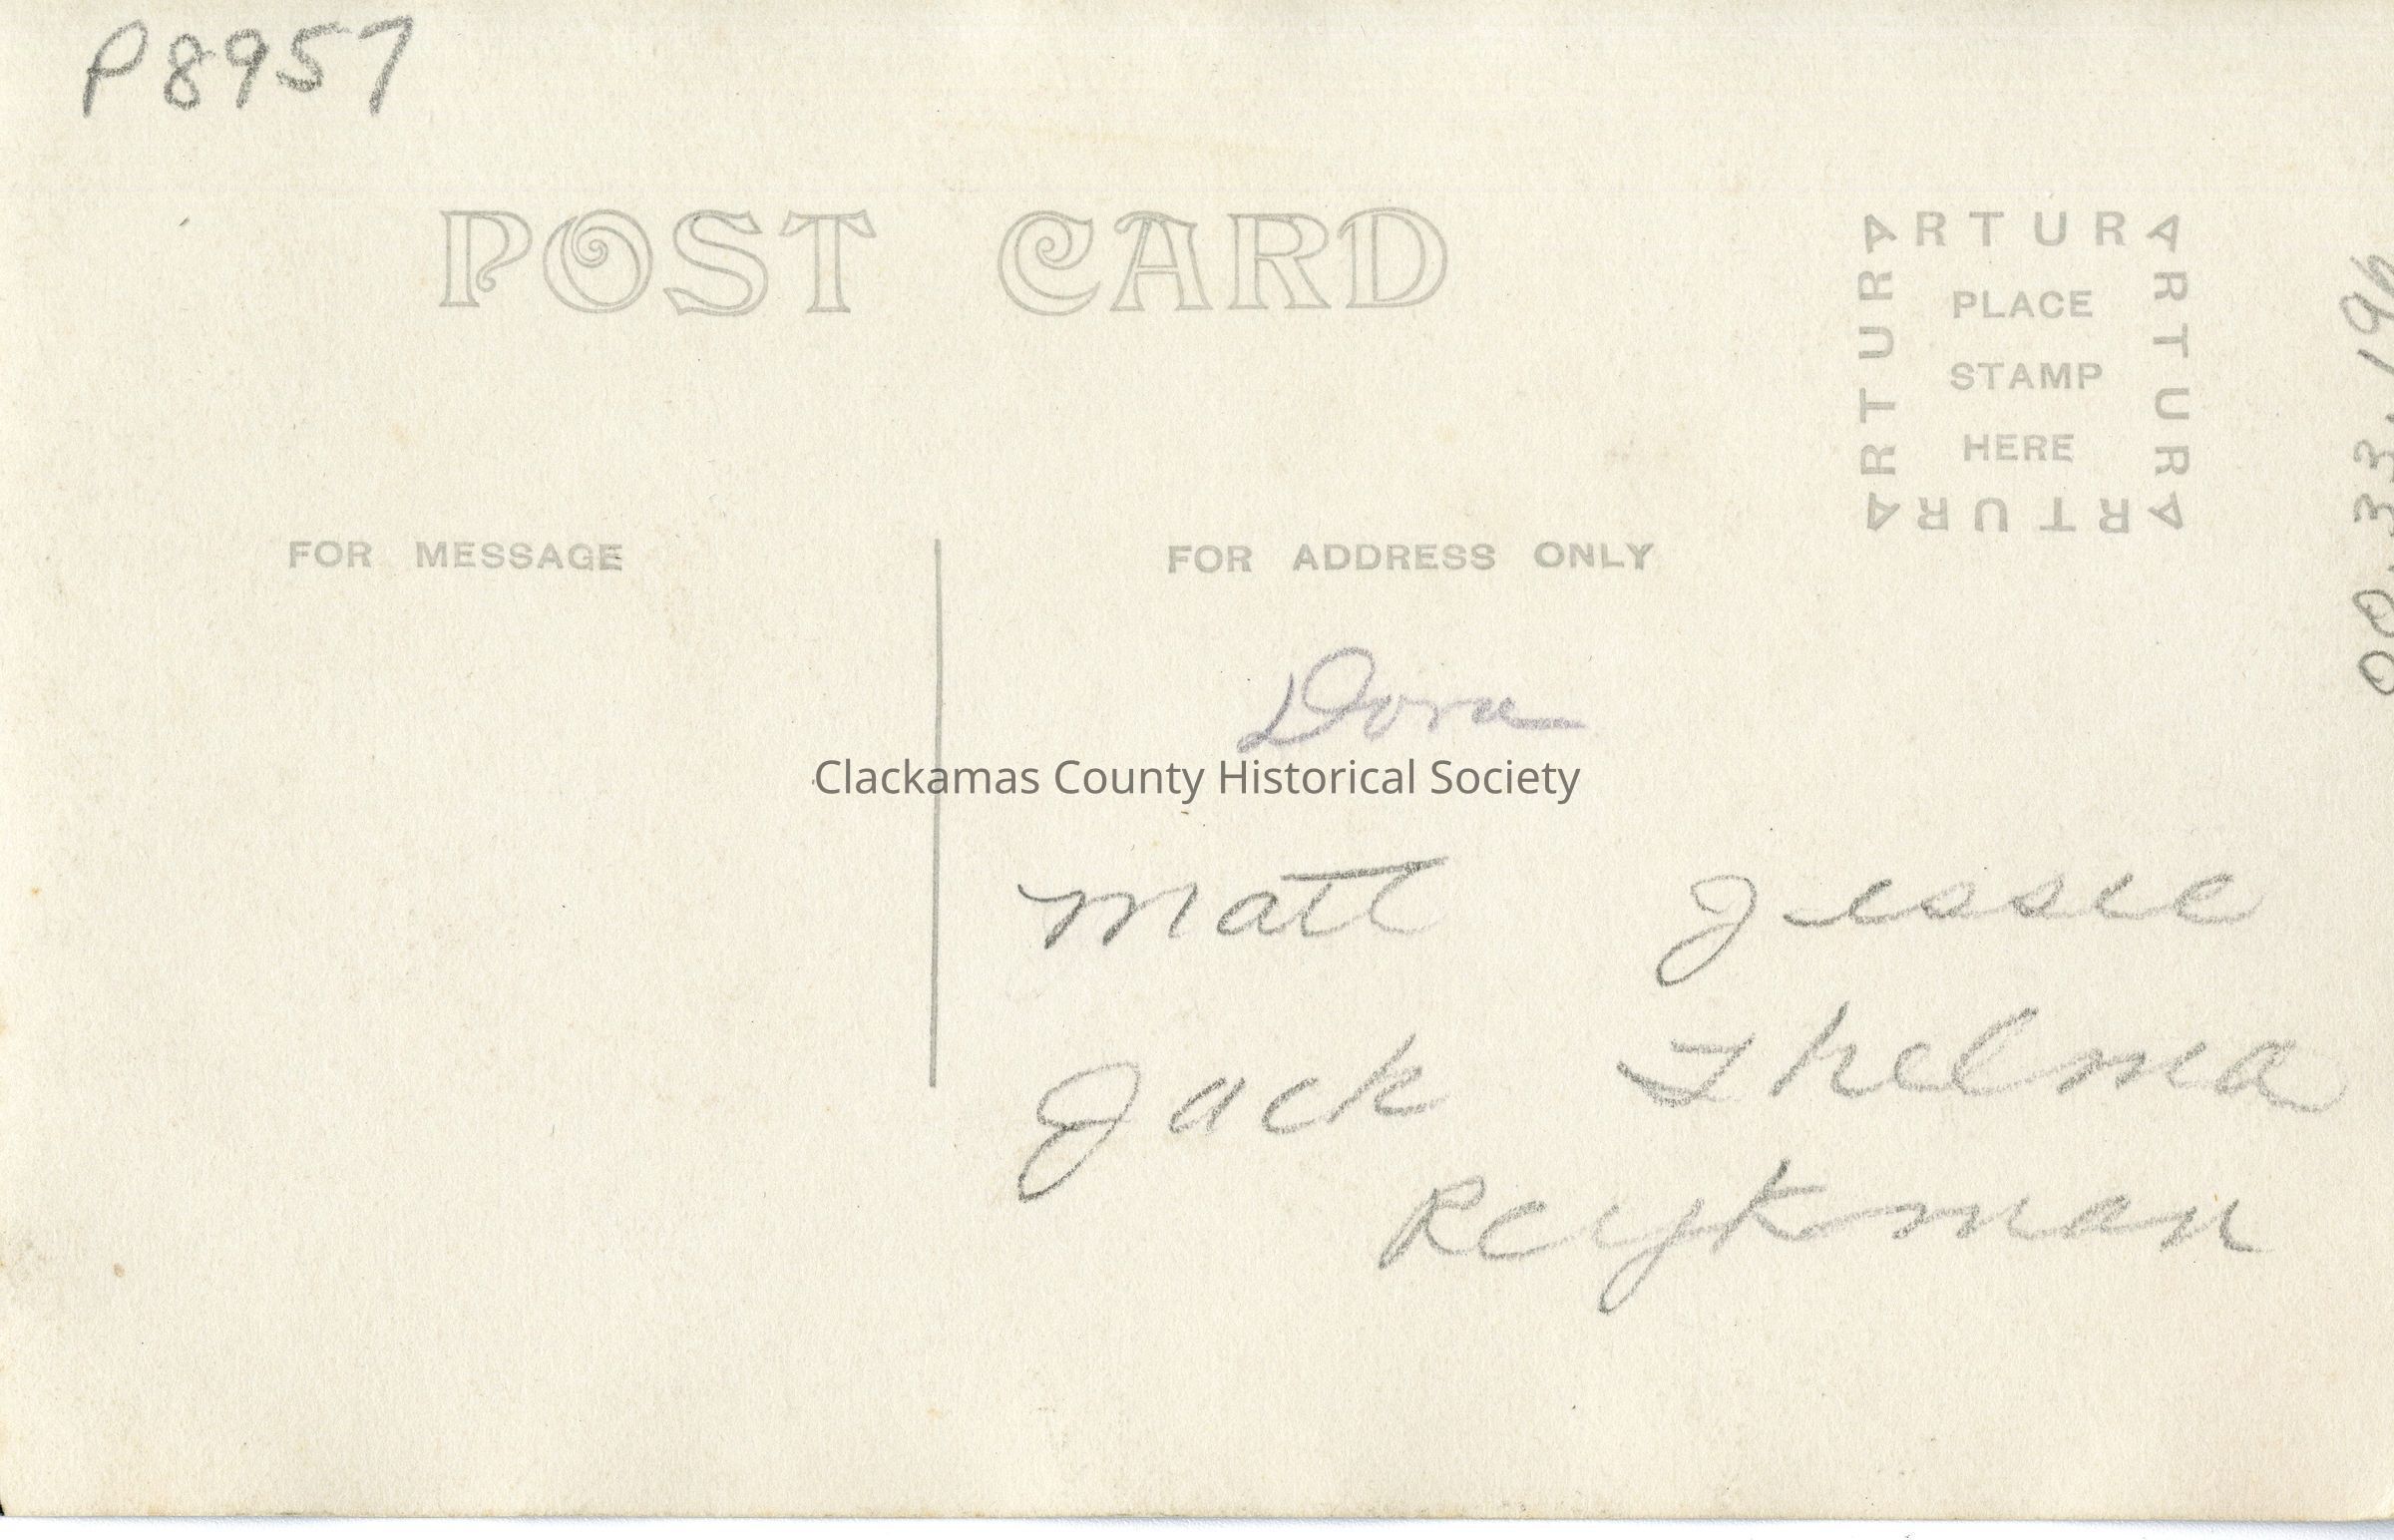 P8957
POST CARD
ARTURA
ARTURA
ARTURA
ARTURA
PLACE
STAMP
HERE
FOR MESSAGE
FOR ADDRESS ONLY
Dora
Clackamas County Historical Society
Matt Jessie
Jack Thelma
Reykman